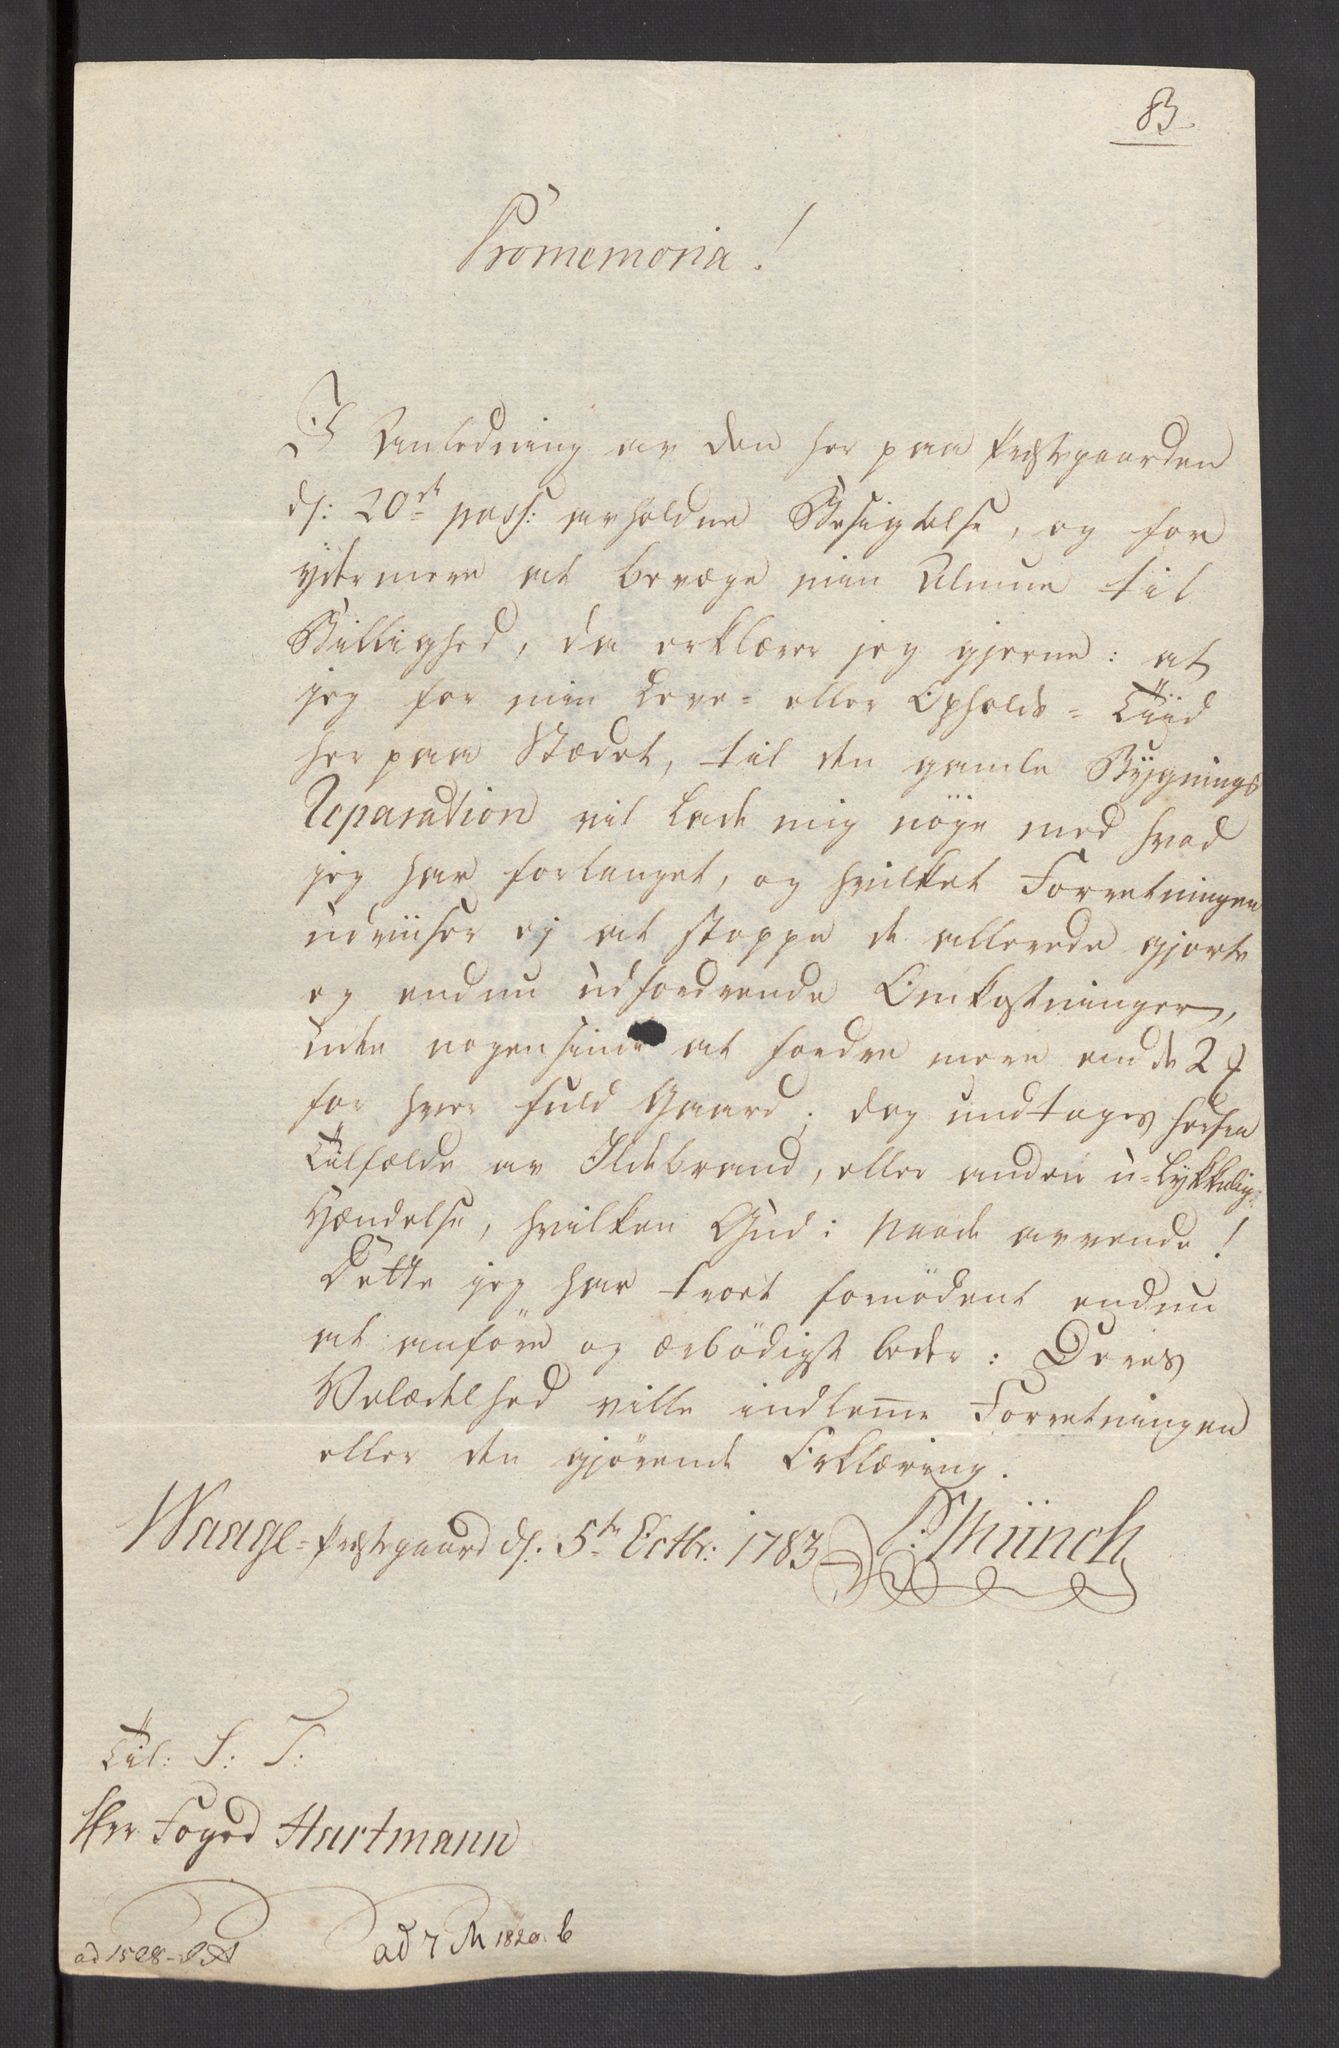 83
Promemoria!
I Anledning av den her paa Præstegaarden
d: 20de pass: avholdne Besigtelse, og for
ÿdermere at bevæge min Almue til
Billighed, da erklærer jeg gjerne: at
jeg for min Leve= eller Opholds=Tiid
her paa Stædet, til den gamle Bÿgnings
Reparation vil lade mig nöÿe med hvad
jeg har forlanget, og hvilket Forretningen
udviiser ej at stoppe de allerede gjorte
og endnu udfordrende Omkostninger,
uden nogensinde at fordre mere end de 2
for hver fuld Gaard; dog undtages herfra
Tilfælde av Ildebrand, eller anden u=lÿkkelig
Hændelse, hvilken Gud i Naade avvende!
Dette jeg har troet fornödent endnu
at anföre og ærbödigst beder: Deres
Velædelhed ville indlem̅e Forretningen
eller den gjörende Erklæring.
Waage=Præstegaard d: 5te Octbr: 1783 P: Münch
Til: S: T:
Hr: Foged Hartmann
ad 7 M 1820. b